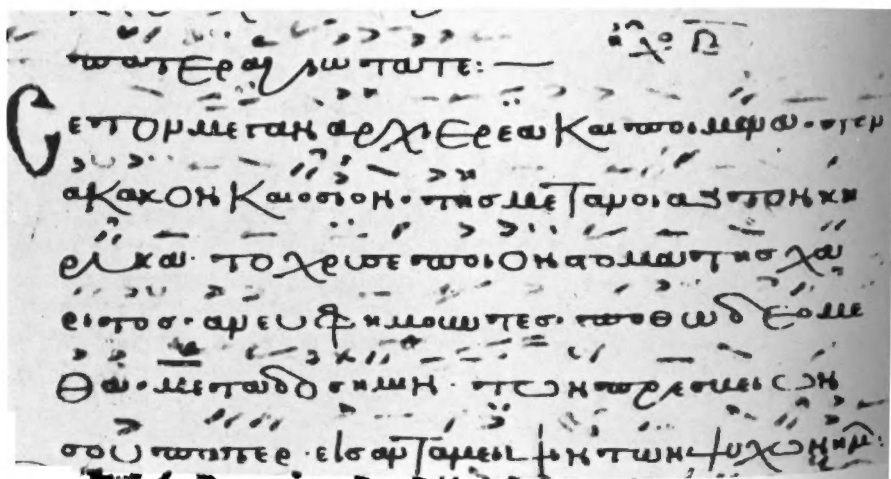 πατερ αγιωτατε:— ηχο
Σε τον μεγαν αρχιερεα και ποιμενα· τον
ακακον και οσιον· της μετανοιας τον κη
ρυκα· το χρυσεποιον στομα της χα
ριτος· ανευφημουντες· ποθω δεομε
θα· μεταδος ημιν· των πρεσβειων
σου πατερ· εις ανταμειψιν των ψυχων ημ: